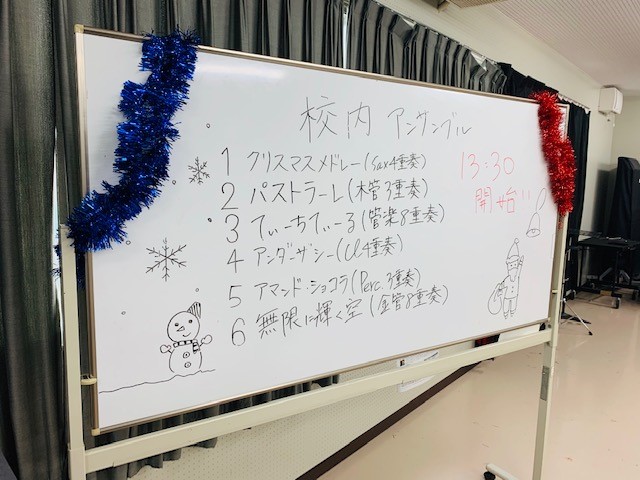 校内 アンサンブル
1 クリスマスメドレー(Sax4重奏)
2 パストラーレ(木管3重奏)
3 てぃーちてぃーる(管楽8重奏)
4 アンダーザシー(Cl.4重奏)
5 アマンド・ショコラ(Perc.3重奏)
6 無限に輝く空(金管8重奏)
13:30
開始!!